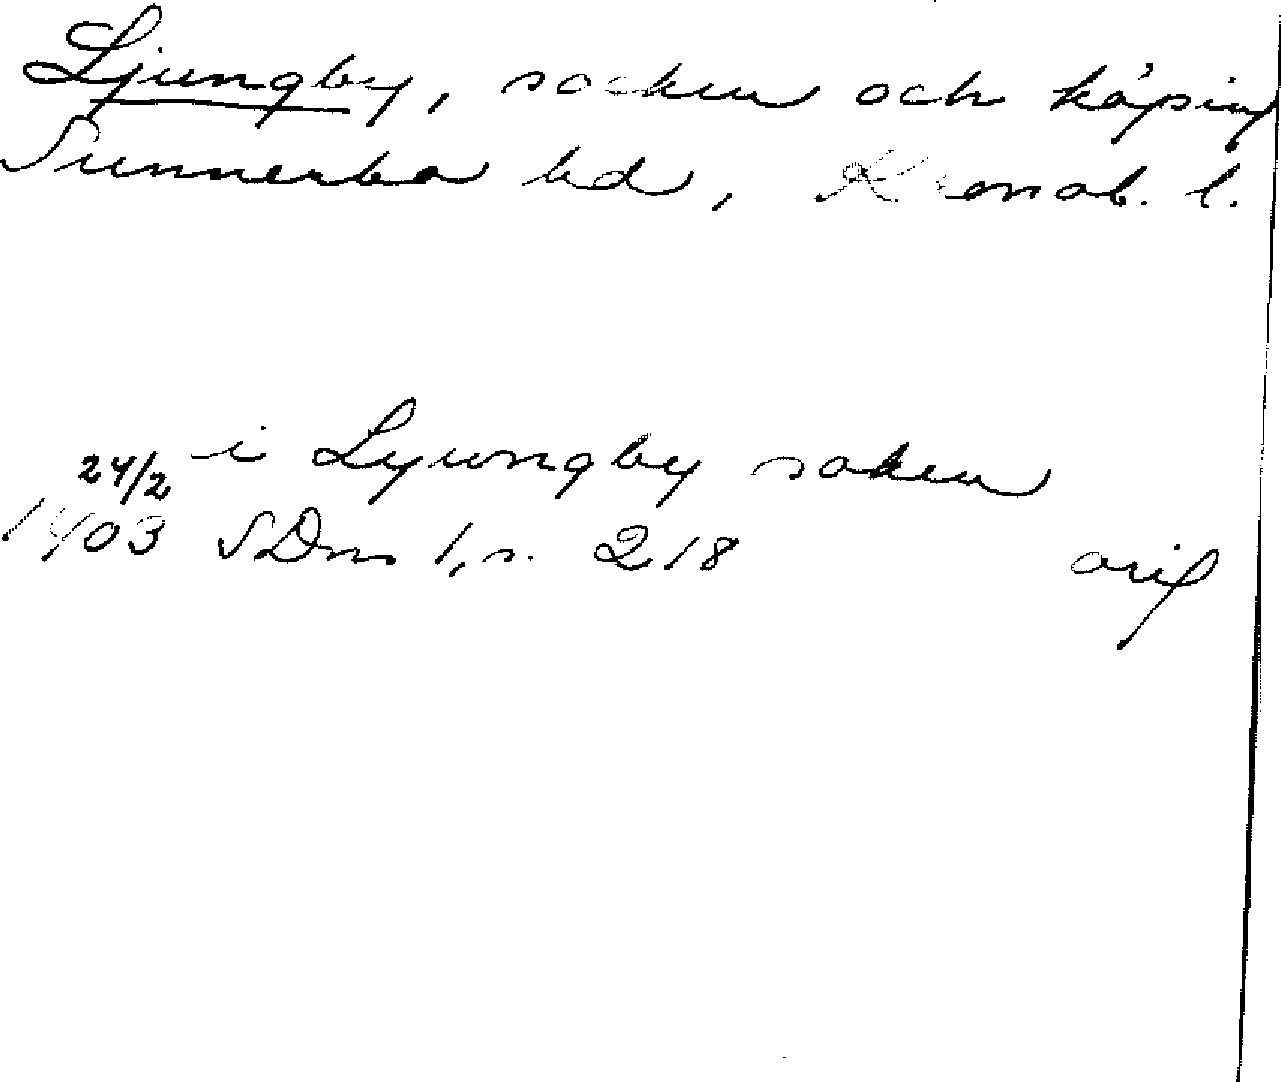 Ljungby, socken och köping
Sunnerbo hd, Kronob. l.
i Lyungby soken
24/2
1403 SDns 1, s. 218 orig